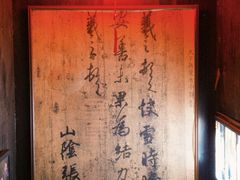 羲之頓首快雪時晴
安善未果為結力
羲之頓首
山陰張